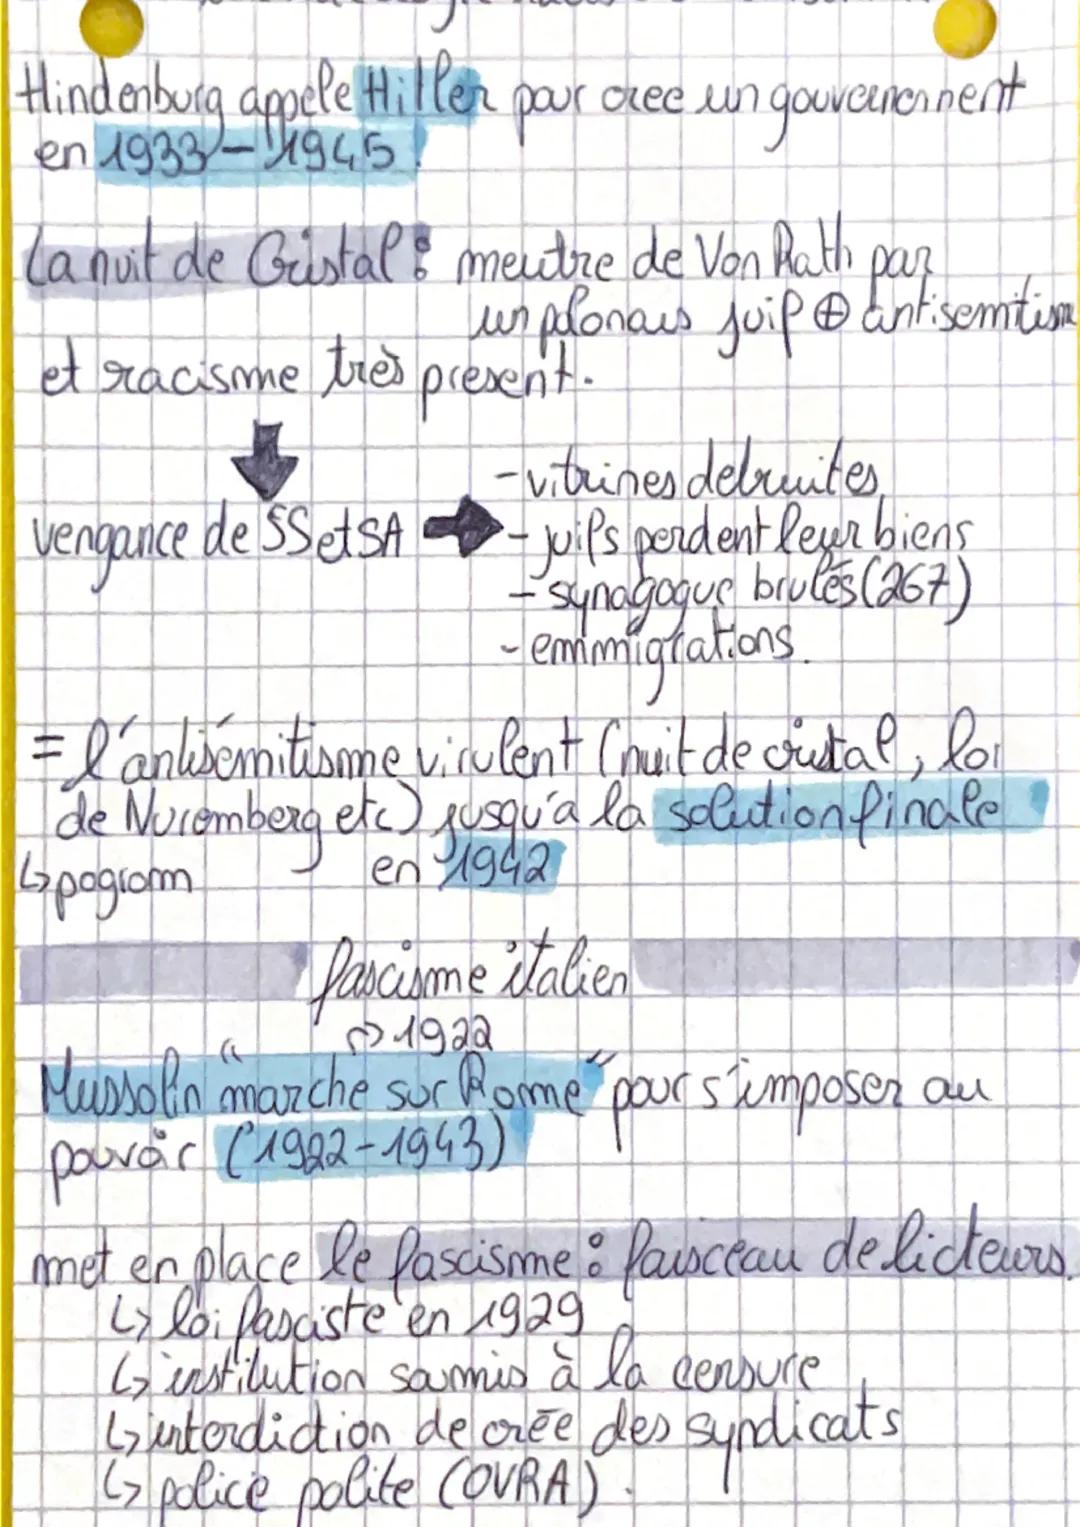 Hindenburg appele Hitler pour cree un gouvernement
en 1933-1945.
La nuit de Cristal : meutre de Von Rath par
un polonais juif ⊕ antisemitism
et racisme très present.
vengance de SS et SA
-vitrines detruites
- juifs perdent leur biens
- synagogue brulés (267)
- emmigrations.
= l'antisémitisme virulent (nuit de cristal, loi
de Nuremberg etc) jusqu'a la solution finale
↳ pogrom en 1942
fascisme italien
↳ 1922
Mussolin "marche sur Rome" pour s'imposer au
pouvoir (1922-1943)
met en place le fascisme : faisceau de licteurs.
↳ loi fasciste en 1929
↳ institution soumis à la censure
↳ interdiction de crée des syndicats
↳ police polite (OVRA).